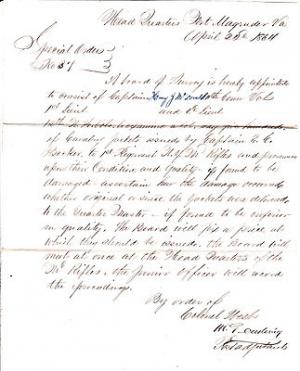 Head Quarters Fort Magruder Va
April 25th 1864
Special Orders
No 37
A board of Survey is hereby appointed
to consist of Captain Conn Vols
1st Lieut and 2d Lieut
Cavalry jackets issued by Captain C. C.
Barker, to 1st Regiment N.Y. Mt Rifles and pronounce
upon their Condition and Quality if found to be
damaged ascertain how the damage occurred
whether original or since the jackets was delivered
to the Quarter Master – if found to be inferior
in quality. The Board will fix a price at
which they should be issued. the Board will
meet at once at the Head Quarters of the
Mt Rifles, the junior Officer will record
the proceedings.
By order of
Colonel West